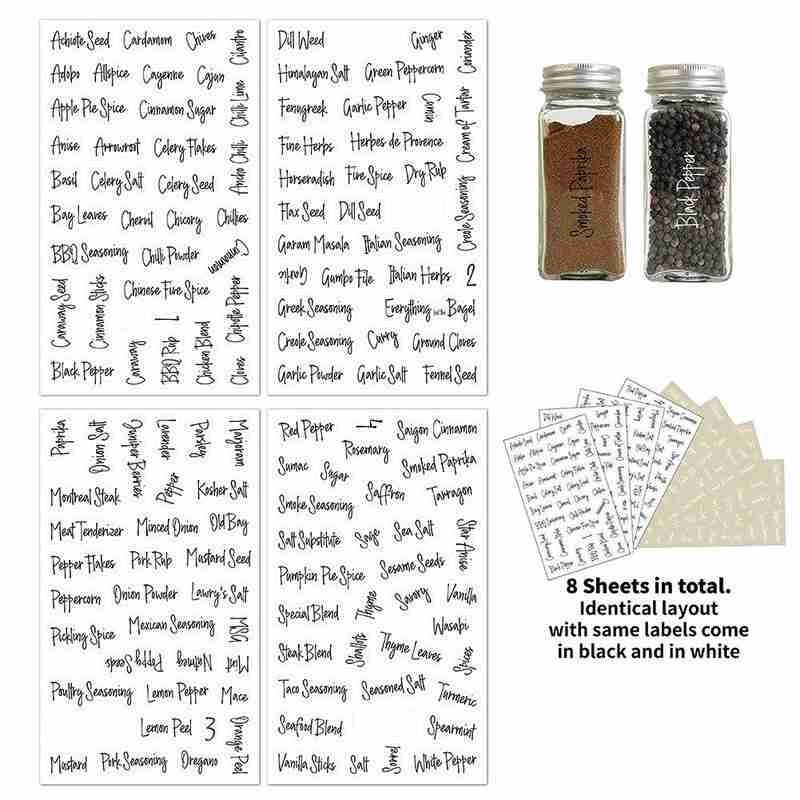 Achiote Seed Cardamom Chives Cilantro
Adobo Allspice Cayenne Cajun
Chili Lime
Apple Pie Spice Cinnamon Sugar
Anise Arrowroot Celery Flakes
Ancho Chili
Basil Celery Salt Celery Seed
Bay Leaves Chervil Chicory Chilies
BBQ Seasoning Chili Powder Cinnamon
Caraway Seed Cinnamon Sticks Chinese Five Spice Chipotle Pepper
1
Black Pepper Caraway BBQ Rub Chicken Blend Cloves
Dill Weed Ginger Coriander
Himalayan Salt Green Peppercorn
Fenugreek Garlic Pepper Cumin Cream of Tartar
Fine Herbs Herbes de Provence
Horseradish Five Spice Dry Rub
Creole Seasoning
Flax Seed Dill Seed
Garam Masala Italian Seasoning
Garlic Gumbo File Italian Herbs 2
Greek Seasoning Everything but the Bagel
Creole Seasoning Curry Ground Cloves
Garlic Powder Garlic Salt Fennel Seed
Paprika Onion Salt Juniper Berries Lavender Parsley Marjoram
Montreal Steak Pepper Kosher Salt
Meat Tenderizer Minced Onion Old Bay
Pepper Flakes Pork Rub Mustard Seed
Peppercorn Onion Powder Lawry's Salt
Pickling Spice Mexican Seasoning MSG
Poppy Seeds Nutmeg Mint
Poultry Seasoning Lemon Pepper Mace
Lemon Peel 3 Orange Peel
Mustard Pork Seasoning Oregano
Red Pepper 4 Saigon Cinnamon
Rosemary
Sumac Sugar Smoked Paprika
Smoke Seasoning Saffron Tarragon
Salt Substitute Soya Sea Salt Star Anise
Pumpkin Pie Spice Sesame Seeds
Special Blend Thyme Savory Vanilla
Wasabi
Steak Blend Shallots Thyme Leaves Spices
Taco Seasoning Seasoned Salt Turmeric
Seafood Blend Spearmint
Vanilla Sticks Salt Sorrel White Pepper
Smoked Paprika
Black Pepper
8 Sheets in total.
Identical layout
with same labels come
in black and in white